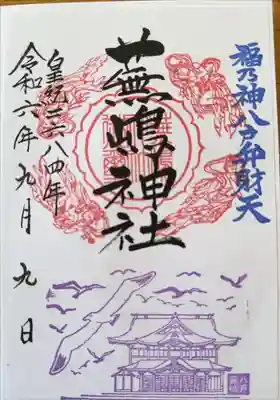 福乃神八戸弁財天
蕪嶋神社
皇紀二六八四年
令和六年九月九日